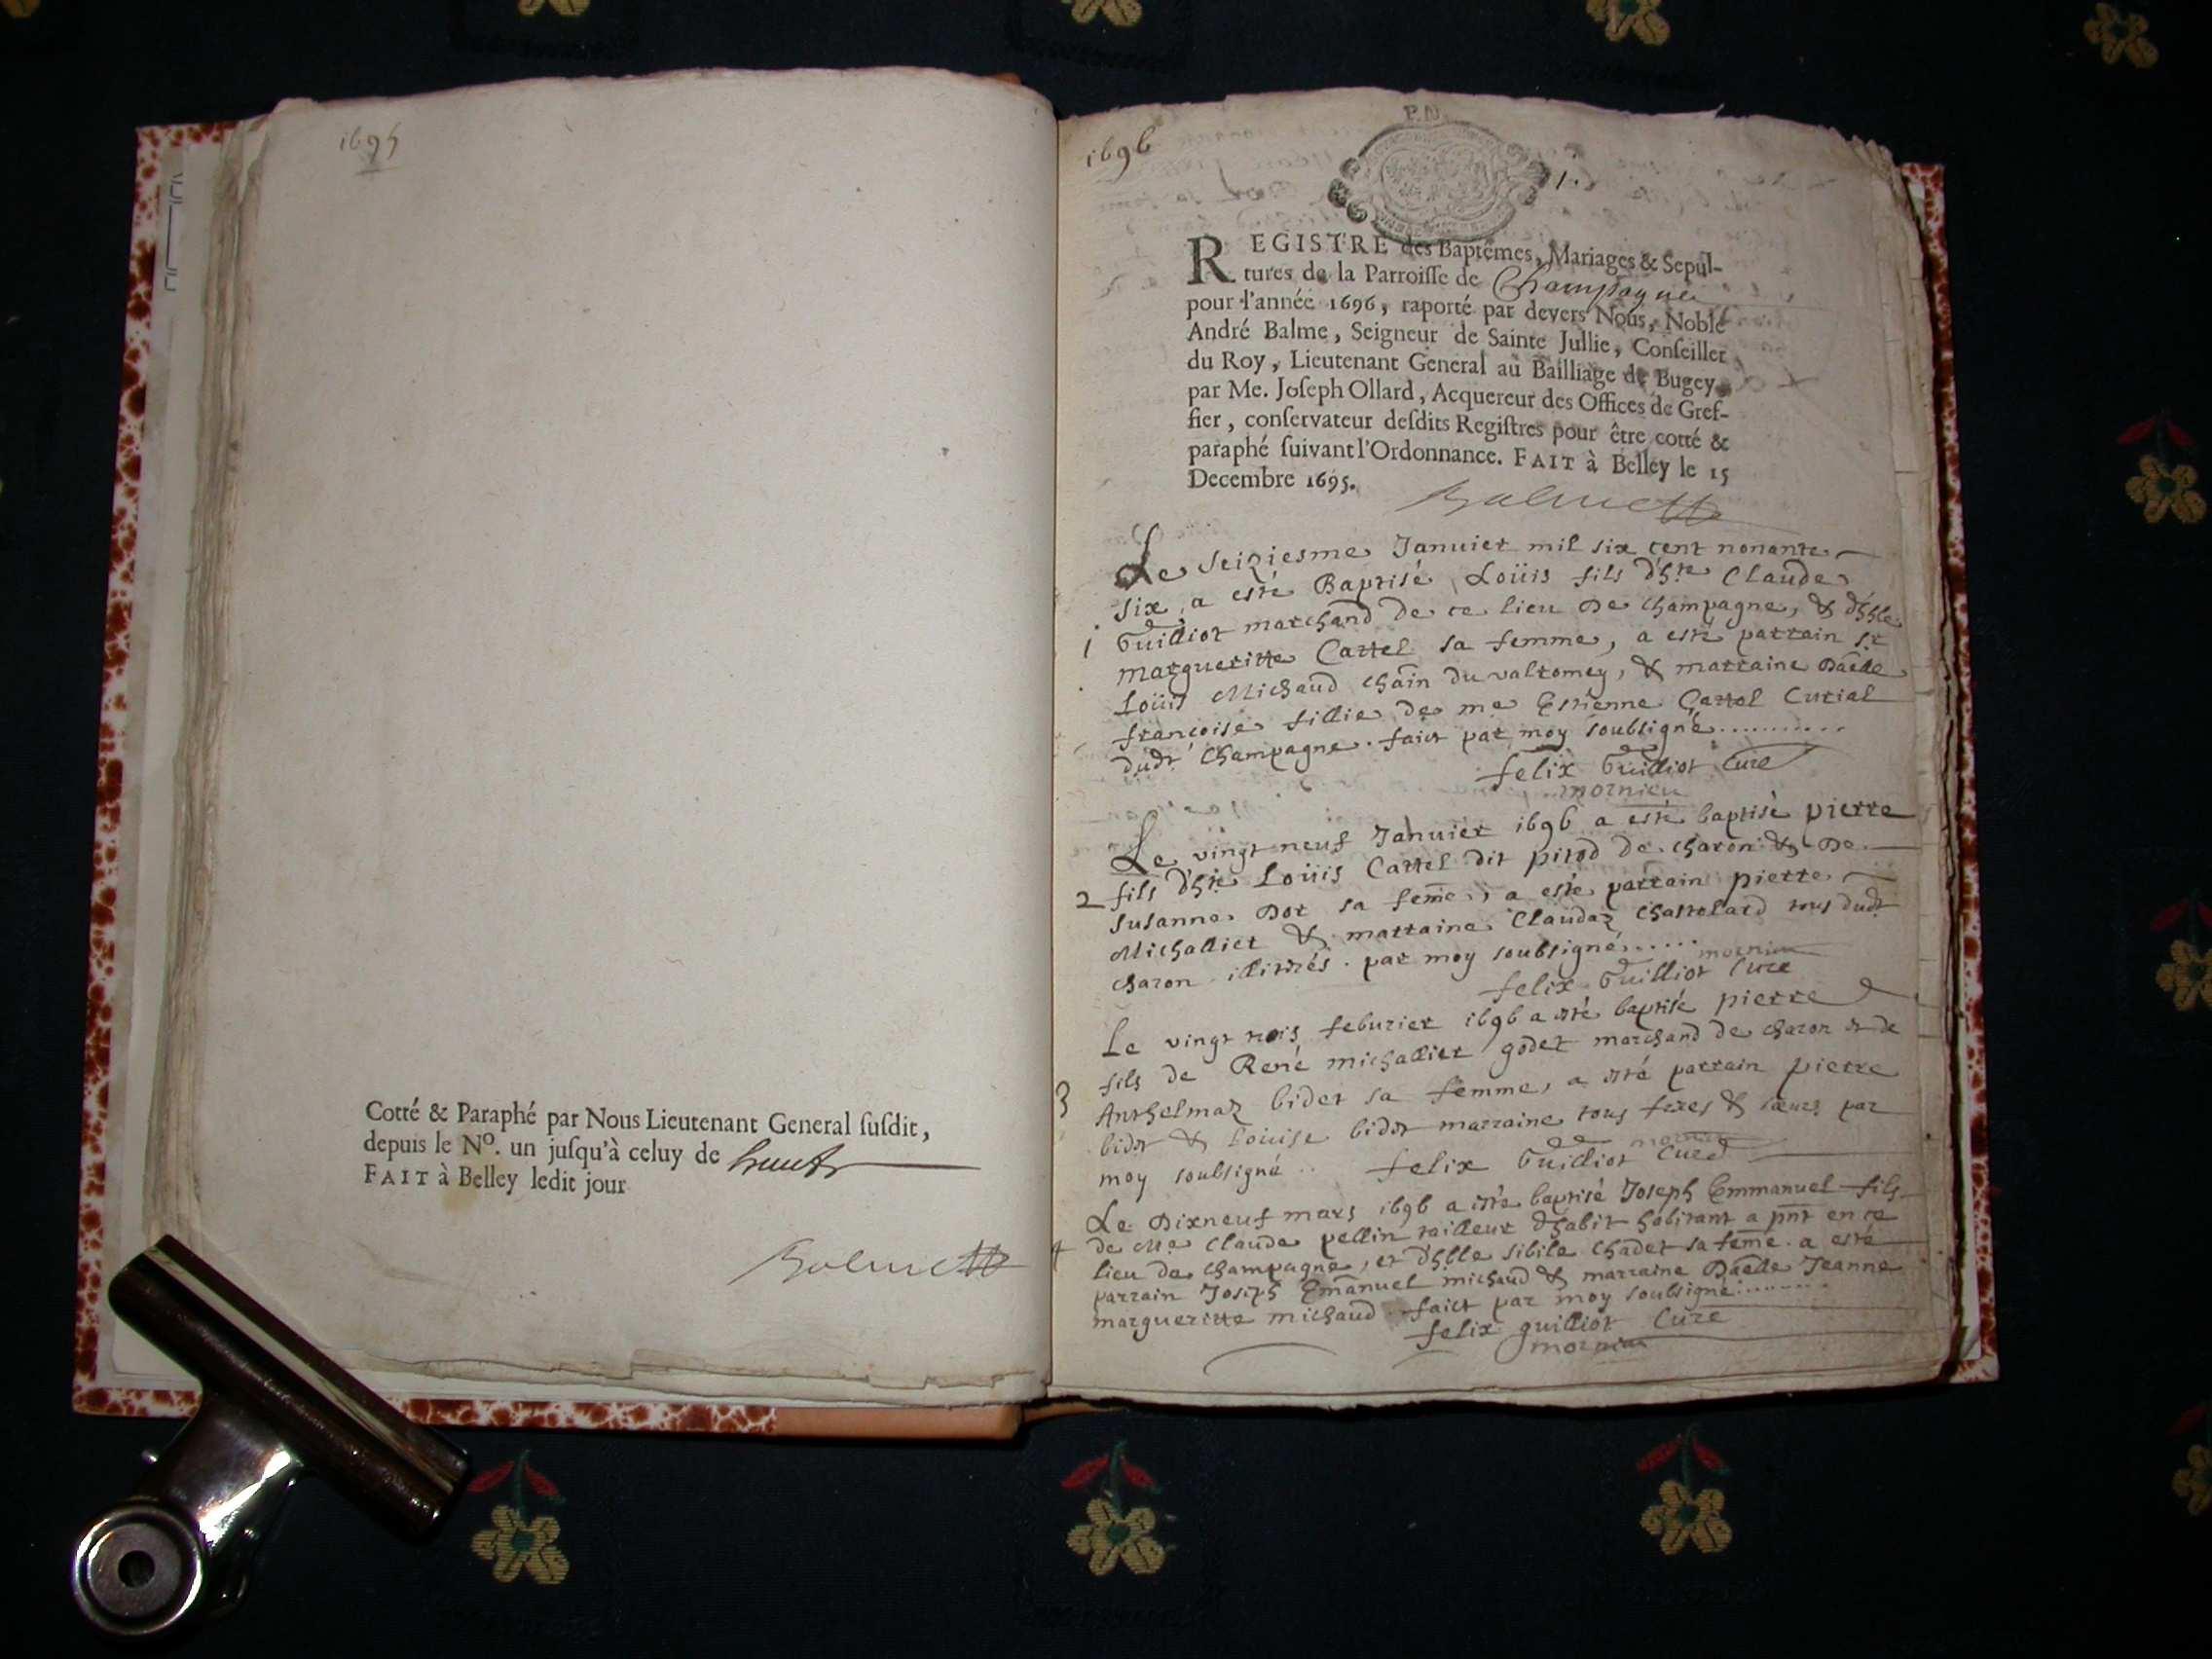 1695
Cotté & Paraphé par Nous Lieutenant General ſuſdit,
depuis le Nº. un juſqu'à celuy de huit
FAIT à Belley ledit jour
1696
1.
REGISTRE des Baptêmes, Mariages & Sepul-
tures de la Parroiſſe de Champagne
pour l'année 1696, raporté par devers Nous, Noble
André Balme, Seigneur de Sainte Jullie, Conſeiller
du Roy, Lieutenant General au Bailliage de Bugey,
par Me. Joſeph Ollard, Acquereur des Offices de Gref-
fier, conſervateur deſdits Regiſtres pour être cotté &
paraphé ſuivant l'Ordonnance. FAIT à Belley le 15
Decembre 1695.
Le seiziesme Januier mil six cent nonante
six, a esté Baptisé Loüis fils d'hte Claude
1 Guilliot marchand de ce lieu De Champagne, & d'hble
margueritte Cartel sa femme, a esté parrain sr
Loüis Michaud chãin du valromey, & marraine Dãelle
françoise fillie de me Estienne Cartel Curial
dudt Champagne. faict par moy soubsigné..........
felix Guilliot Curé
mornieu
Le vingt neuf Januier 1696 a esté baptisé pierre
2 fils d'hte Loüis Cartel dit pitod de charon & De
susanne Dor sa feme, a esté parrain pierre
Michalliet & marraine Claudaz Chastelard tous dudt
charon illitrés. par moy soubsigné.....
mornieu
felix Guilliot Curé
Le vingt trois feburier 1696 a esté baptisé pierre
fils de René michalliet godet marchand de charon et de
3 Anthelmaz bidet sa femme, a esté parrain pierre
bidet & Loüise bidet marraine tous freres & sœurs par
moy soubsigné .. felix Guilliot Curé
mornieu
Le Dixneuf mars 1696 a esté baptisé Joseph Emmanuel fils
4 de Me Claude pellin tailleur d'habit habitant a pnt en ce
lieu de Champagne, et d'hble sibile Chadet sa feme. a esté
parrain Joseph Emãnuel michaud & marraine Dãelle Jeanne
margueritte michaud. faict par moy soubsigné.........
felix guilliot Curé
mornieu